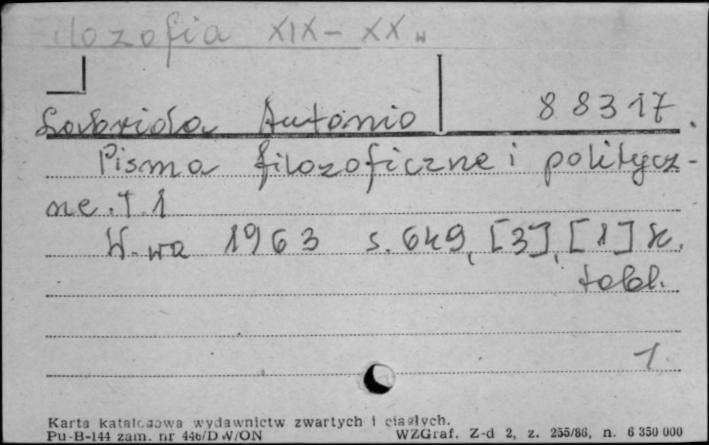 Filozofia XIX-XX w
Labriola Antonio 88317.
Pisma filozoficzne i politycz-
ne. t. 1
W-wa 1963 s. 649, [3], [1] k.
tabl.
1
Karta katalogowa wydawnictw zwartych i ciągłych.
Pu-B-144 zam. nr 446/DW/ON WZGraf. Z-d 2, z. 255/86, n. 6 350 000